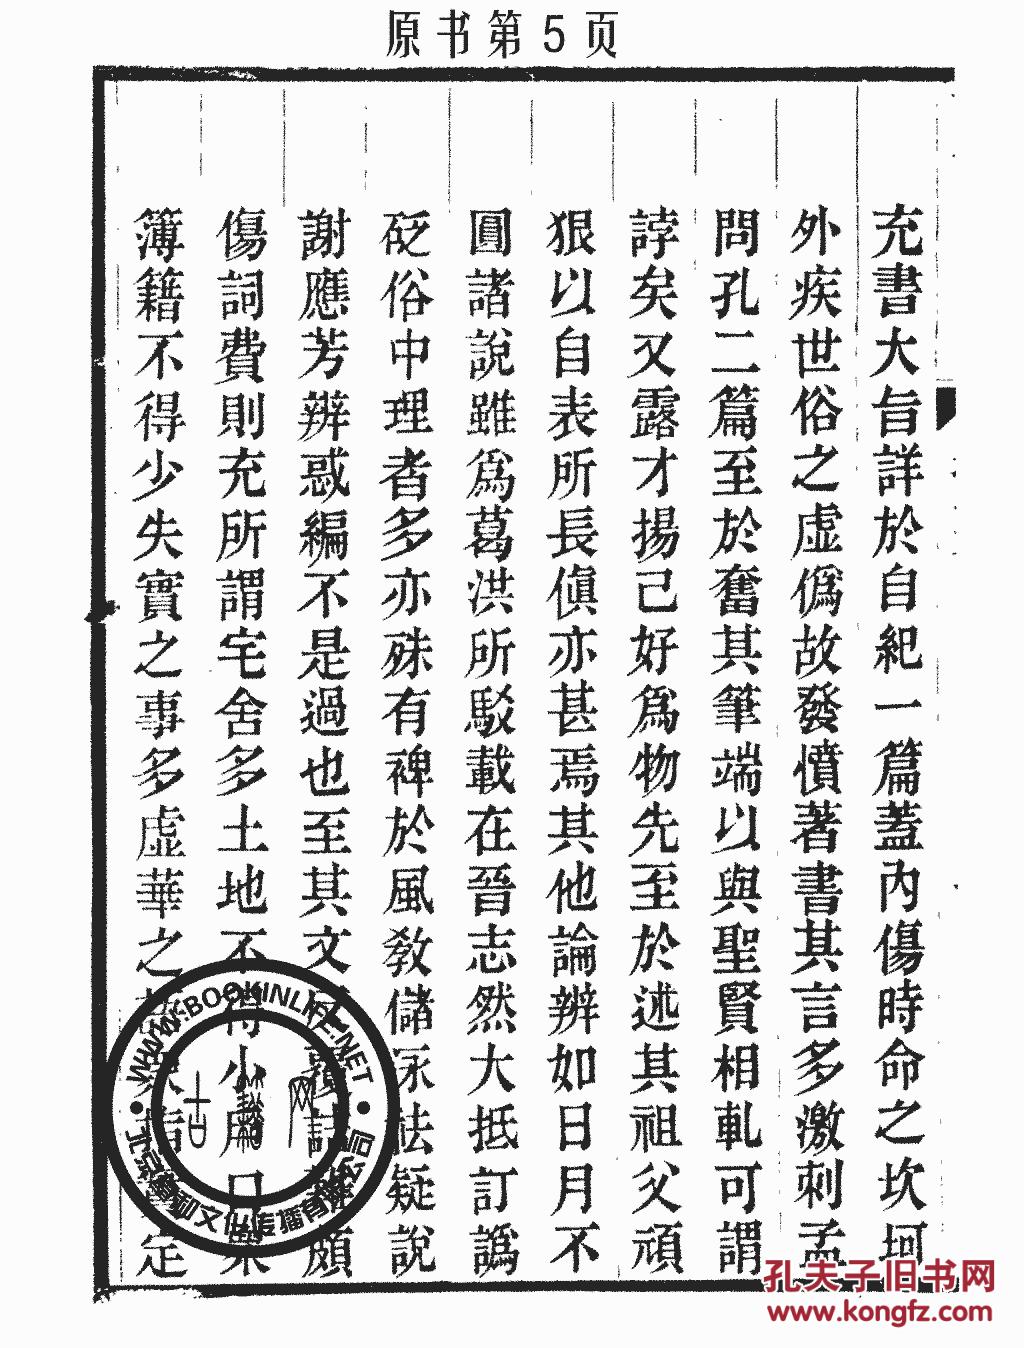 原书第5页
充書大旨詳於自紀一篇蓋內傷時命之坎坷
外疾世俗之虛僞故發憤著書其言多激刺孟
問孔二篇至於奮其筆端以與聖賢相軋可謂
誖矣又露才揚己好爲物先至於述其祖父頑
狠以自表所長傎亦甚焉其他論辨如日月不
圓諸說雖爲葛洪所駁載在晉志然大抵訂譌
砭俗中理者多亦殊有裨於風敎儲泳祛疑說
謝應芳辨惑編不是過也至其文反覆詰難頗
傷詞費則充所謂宅舍多土地不得小戶口衆
簿籍不得少失實之事多虛華之語衆指實定
WWW.BOOKINLIFE.NET
古籍网
孔夫子旧书网
www.kongfz.com